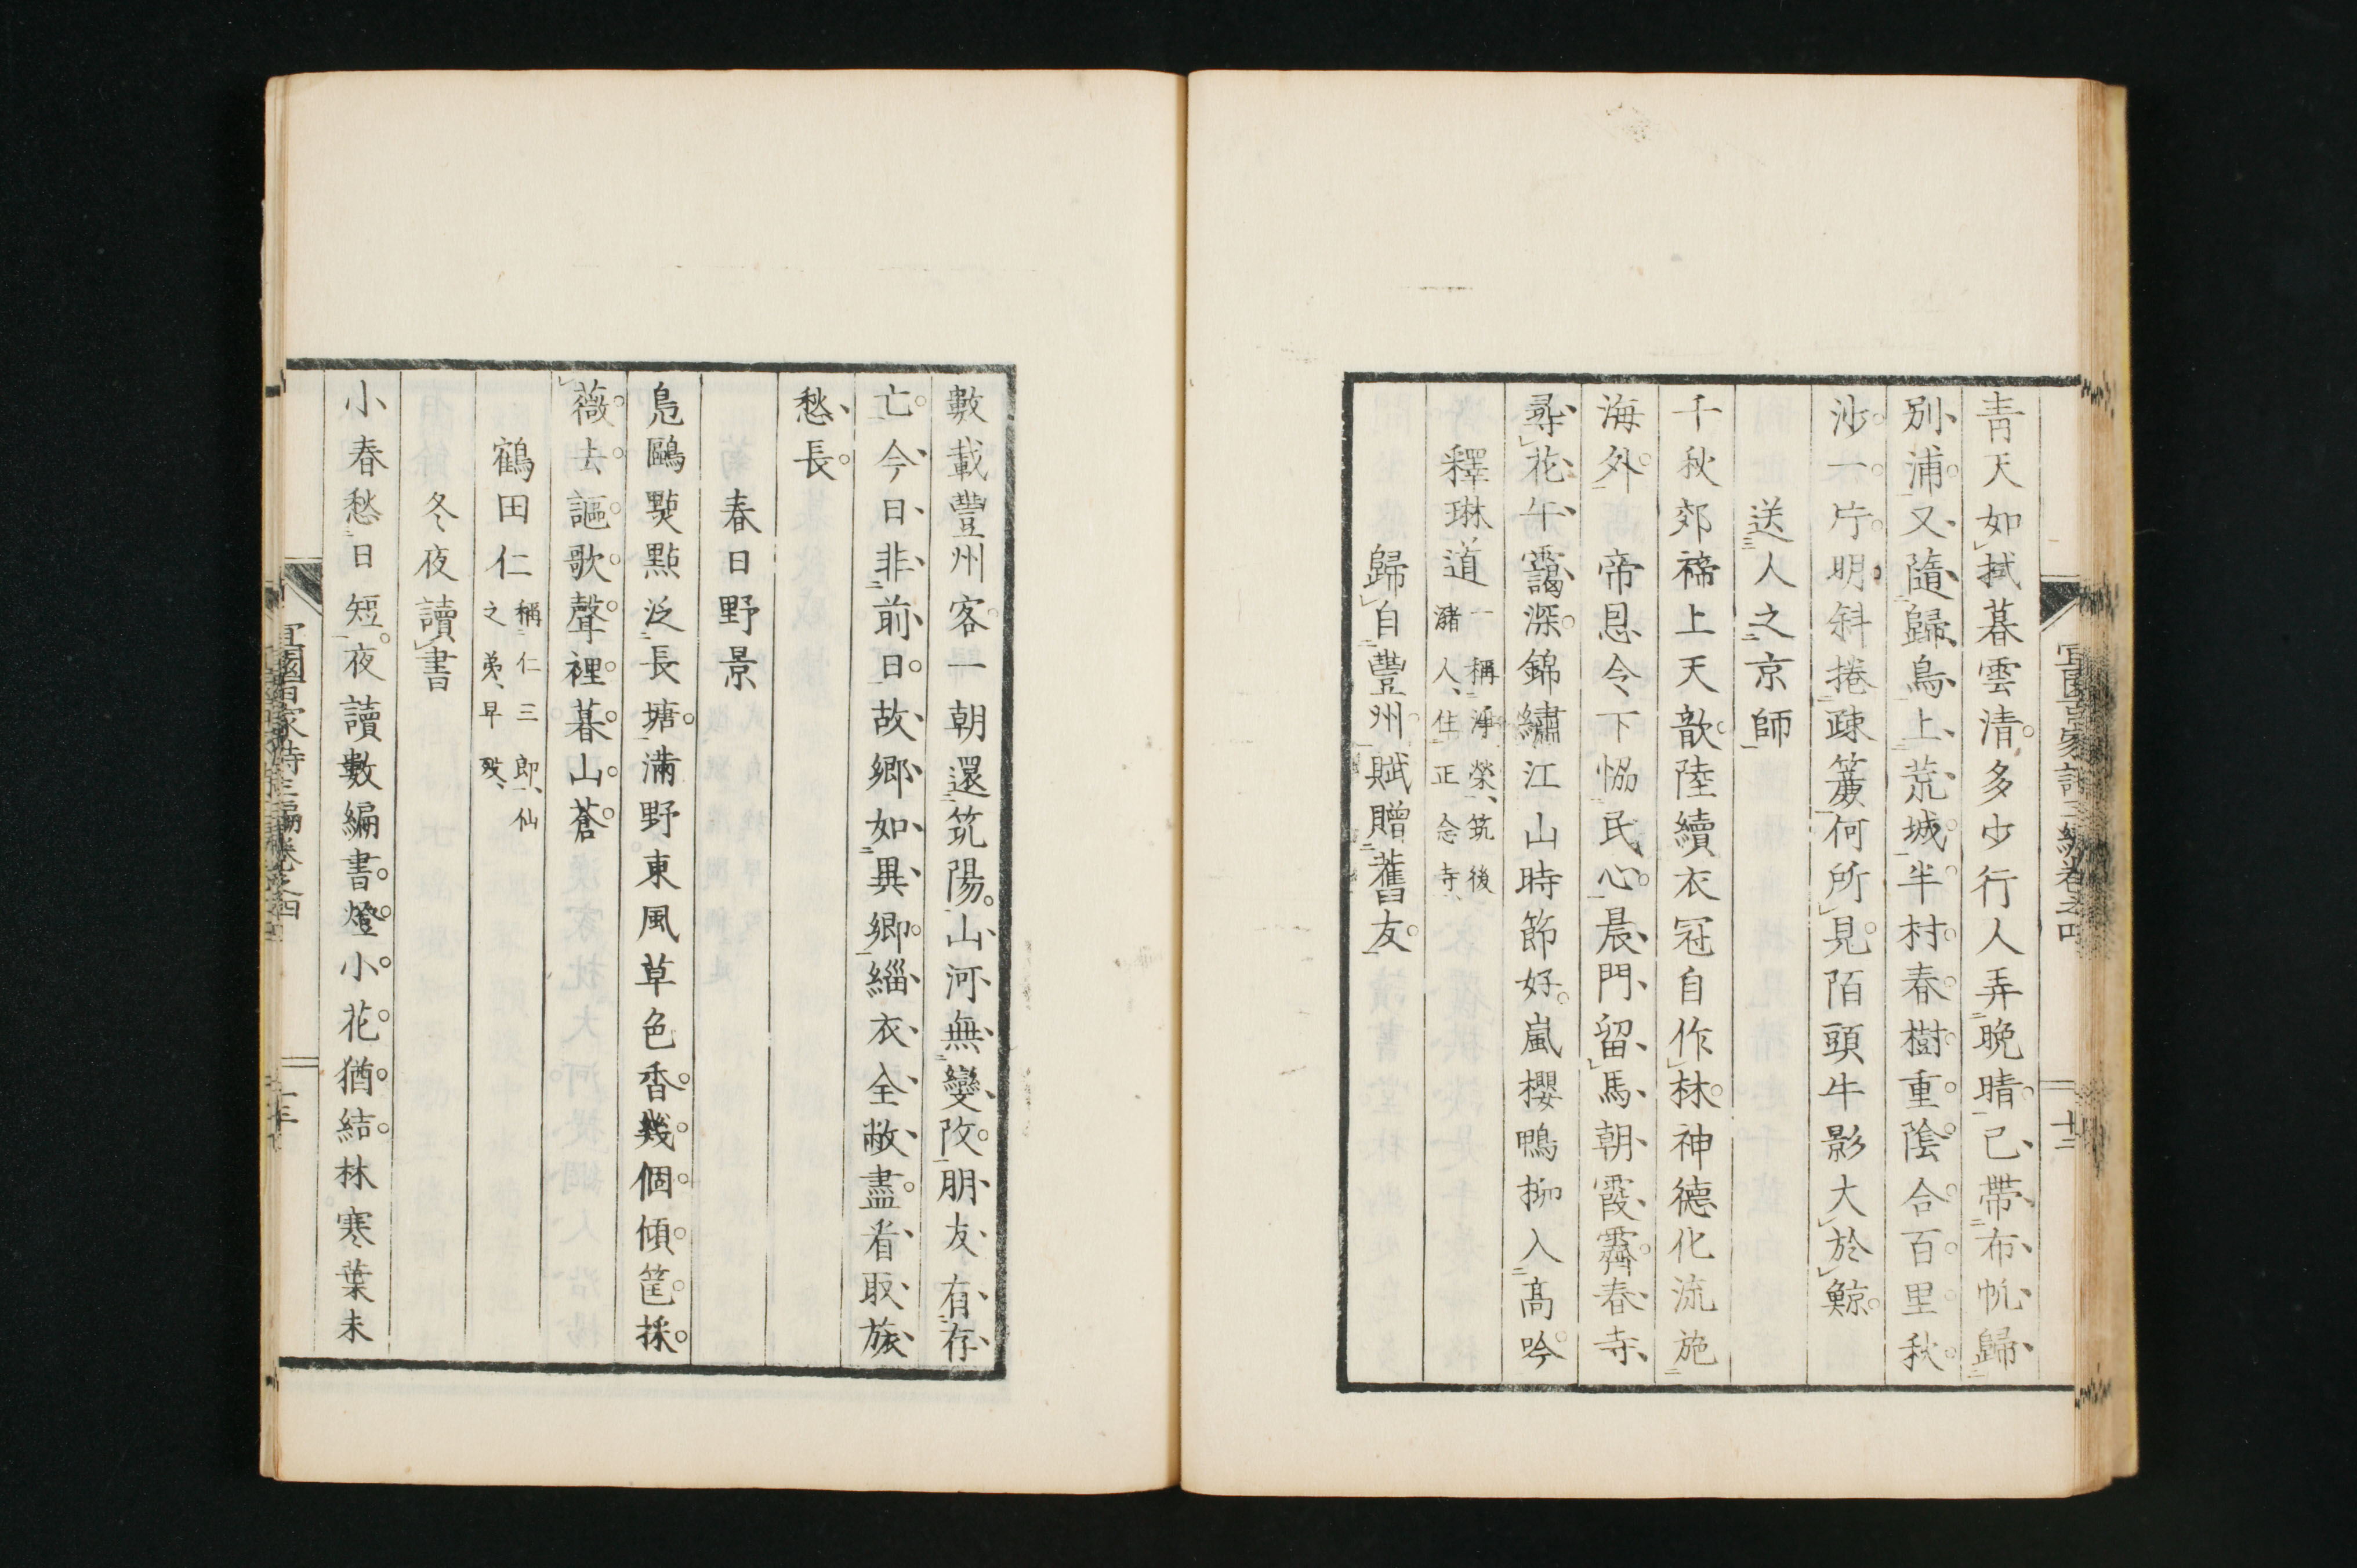 青天如拭暮雲清多少行人弄晩晴已帶布帆歸
別浦又隨歸鳥上荒城半村春樹重陰合百里秋
沙一片明斜捲疎簾何所見陌頭牛影大於鯨
送人之京師
千秋郊禘上天歆陸續衣冠自作林神德化流施
海外帝恩令下恊民心晨門留馬朝霞霽春寺
尋花午靄深錦繡江山時節好嵐櫻鴨柳入高吟
釋琳道一稱淨榮筑後
瀦人住正念寺
歸自豐州賦贈舊友
數載豐州客一朝還筑陽山河無變改朋友有存
亡今日非前日故鄉如異鄉緇衣全敝盡看取旅
愁長
春日野景
鳧鷗㸃點泛長塘滿野東風草色香幾個傾筐採
薇去謳歌聲裡暮山蒼
鶴田仁稱仁三郎仙
之弟早歿
冬夜讀書
小春愁日短夜讀數編書燈小花猶結林寒葉未